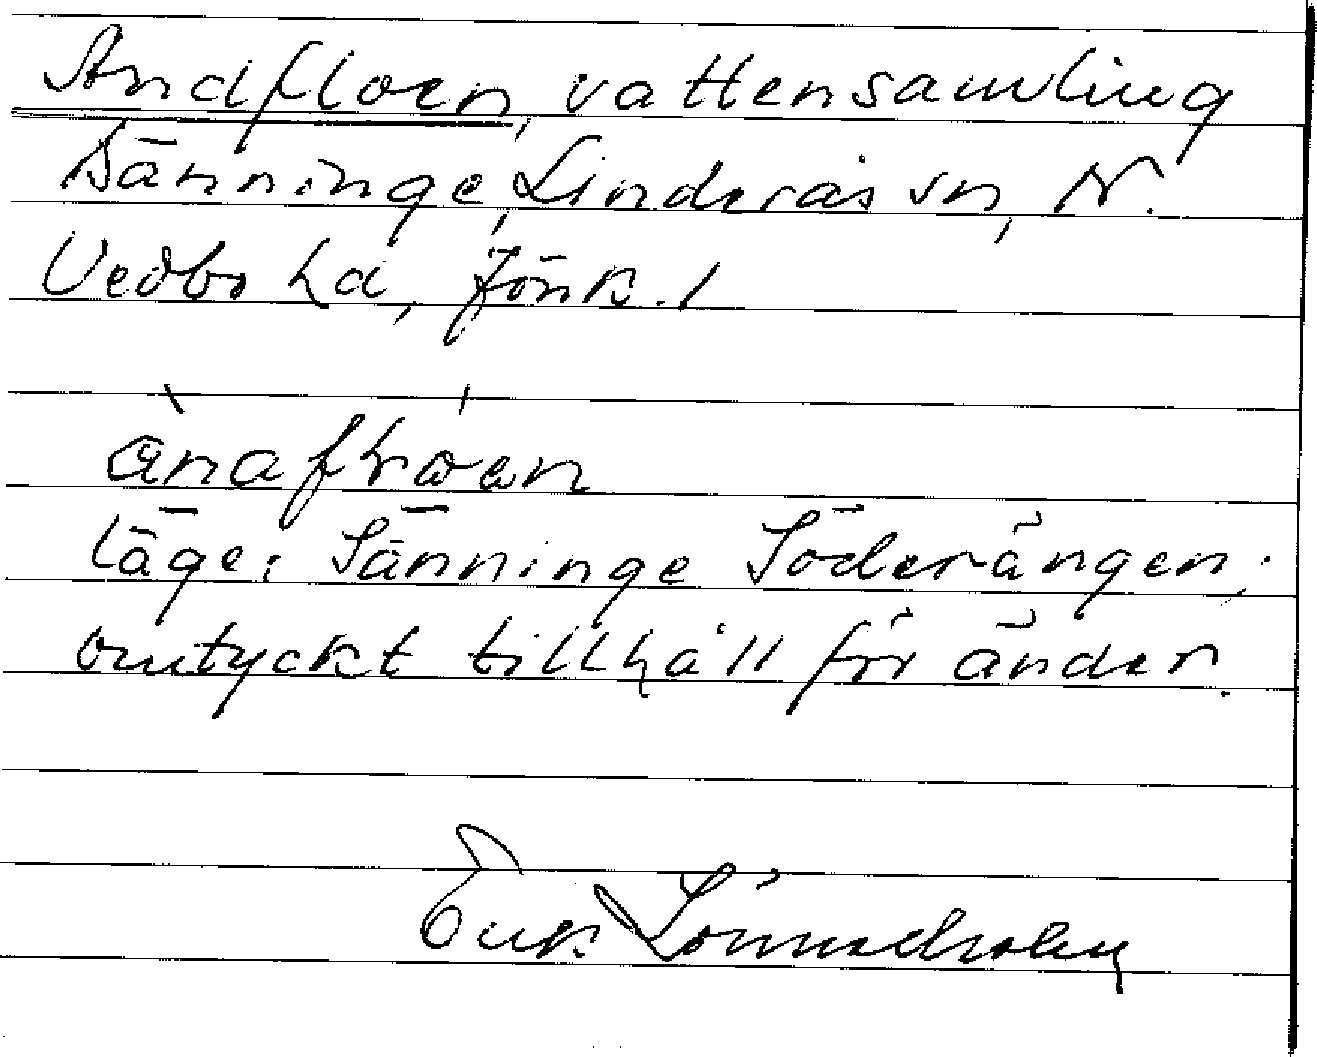 Andfloen, vattensamling
Sänninge, Linderås sn, N.
Vedbo hd, Jönk. l
ànafLóen
läge: Sänninge Söderängen;
omtyckt tillhåll för änder.
Erik Lönnerholm